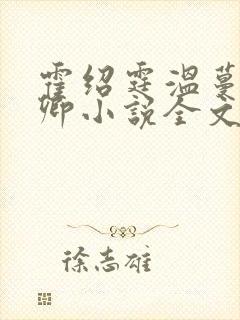 霍绍霆温蔓
卿小说全文
徐志雄